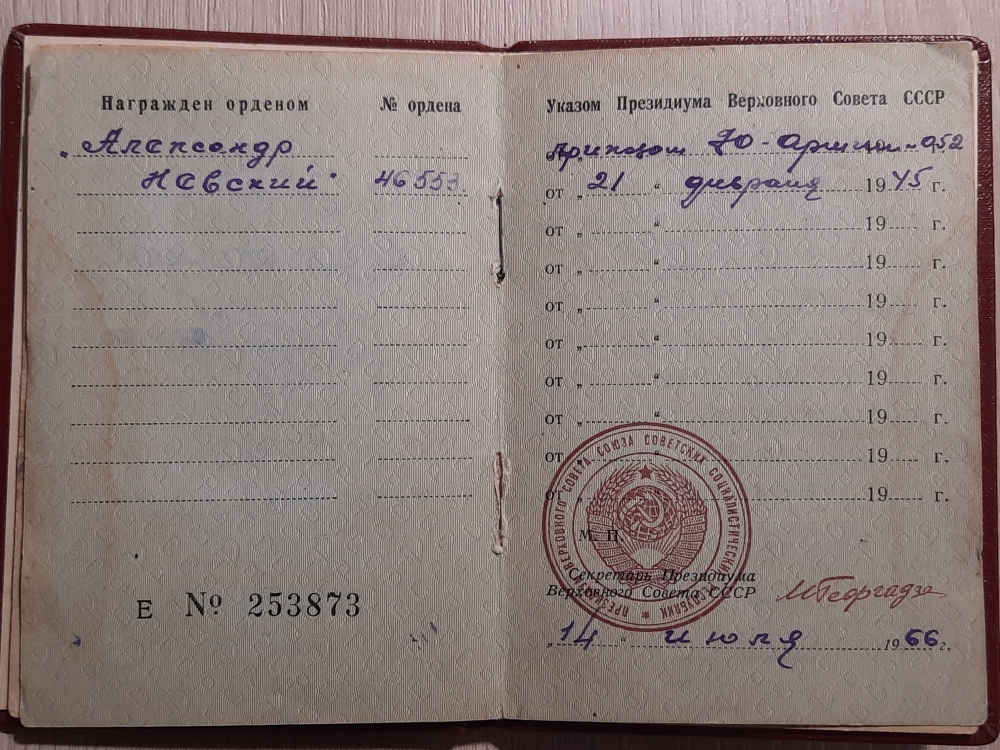 Награжден орденом № ордена
„Александр
Невский“ 46553
Е № 253873
Указом Президиума Верховного Совета СССР
приказом 70-Армии-№52
от „21“ февраля 1945 г.
от „ “ 19 г.
от „ “ 19 г.
от „ “ 19 г.
от „ “ 19 г.
от „ “ 19 г.
от „ “ 19 г.
от „ “ 19 г.
от „ “ 19 г.
ПРЕЗИДИУМ ВЕРХОВНОГО СОВЕТА СОЮЗА СОВЕТСКИХ СОЦИАЛИСТИЧЕСКИХ РЕСПУБЛИК
М. П.
Секретарь Президиума
Верховного Совета СССР МГеоргадзе
„14“ июля 1966 г.